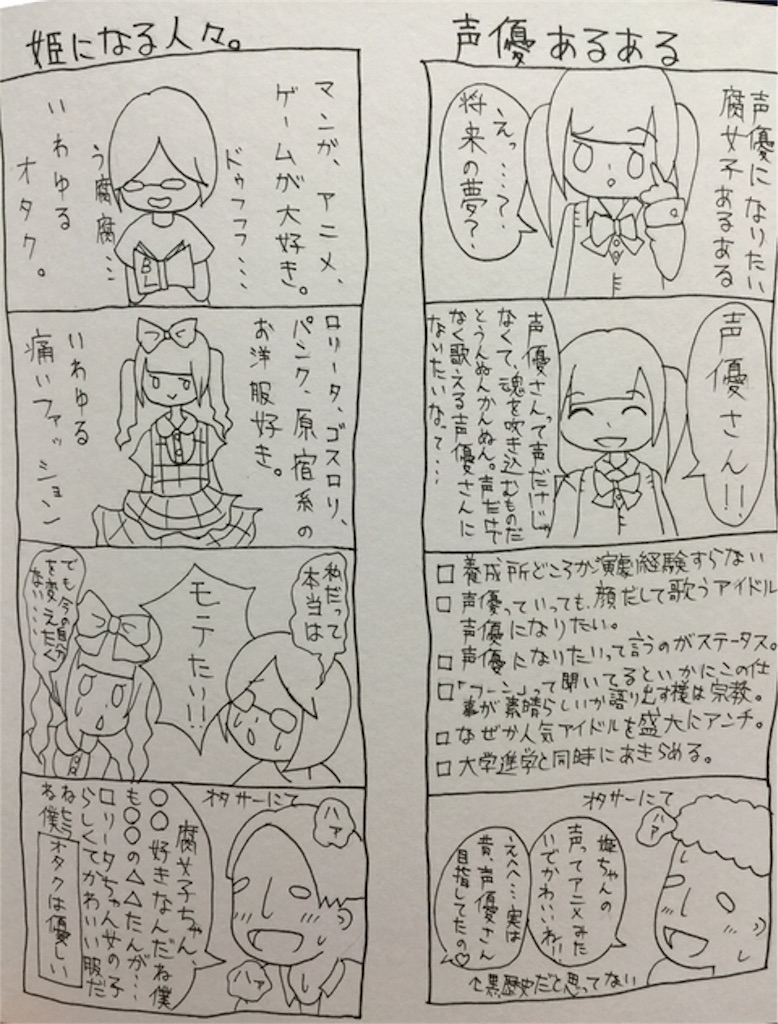 声優あるある
声優になりたい
腐女子あるある
えっ……?
将来の夢?
声優さん!!
声優さんって声だけじゃ
なくて、魂を吹き込むものだ
とうんぬんかんぬん。声だけで
なく歌える声優さんに
なりたいなって…
□養成所どころか演劇経験すらない
□声優っていっても、顔だして歌うアイドル
声優になりたい。
□声優になりたいって言うのがステータス。
□「フーン」って聞いてるといかにこの仕
事が素晴らしいか語り出す様は宗教。
□なぜか人気アイドルを盛大にアンチ。
□大学進学と同時にあきらめる。
オタサーにて
ハァ
姫ちゃんの
声ってアニメみた
いでかわいいね!!
えへへ…実は
昔、声優さん
目指してたの♡
↑黒歴史だと思ってない
姫になる人々。
マンガ、アニメ、
ゲームが大好き。
ドゥフフフ……
う腐腐…
いわゆる
オタク。
BL
ロリータ、ゴスロリ、
パンク、原宿系の
お洋服好き。
いわゆる
痛いファッション
私だって
本当は
モテたい!!
でも今の自分
を変えたく
ない……
オタサーにて
ハァ
腐女子ちゃん、
○○好きなんだね僕
も○○の△△たんが…
ロリータちゃん女の子
らしくてかわいい服だ
ね僕
オタクは優しい
ハァ